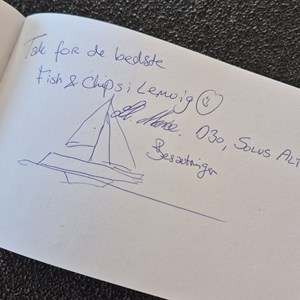 Tak for de bedste
Fish & Chips i Lemvig
D30, SOLUS ALT
Besætninger